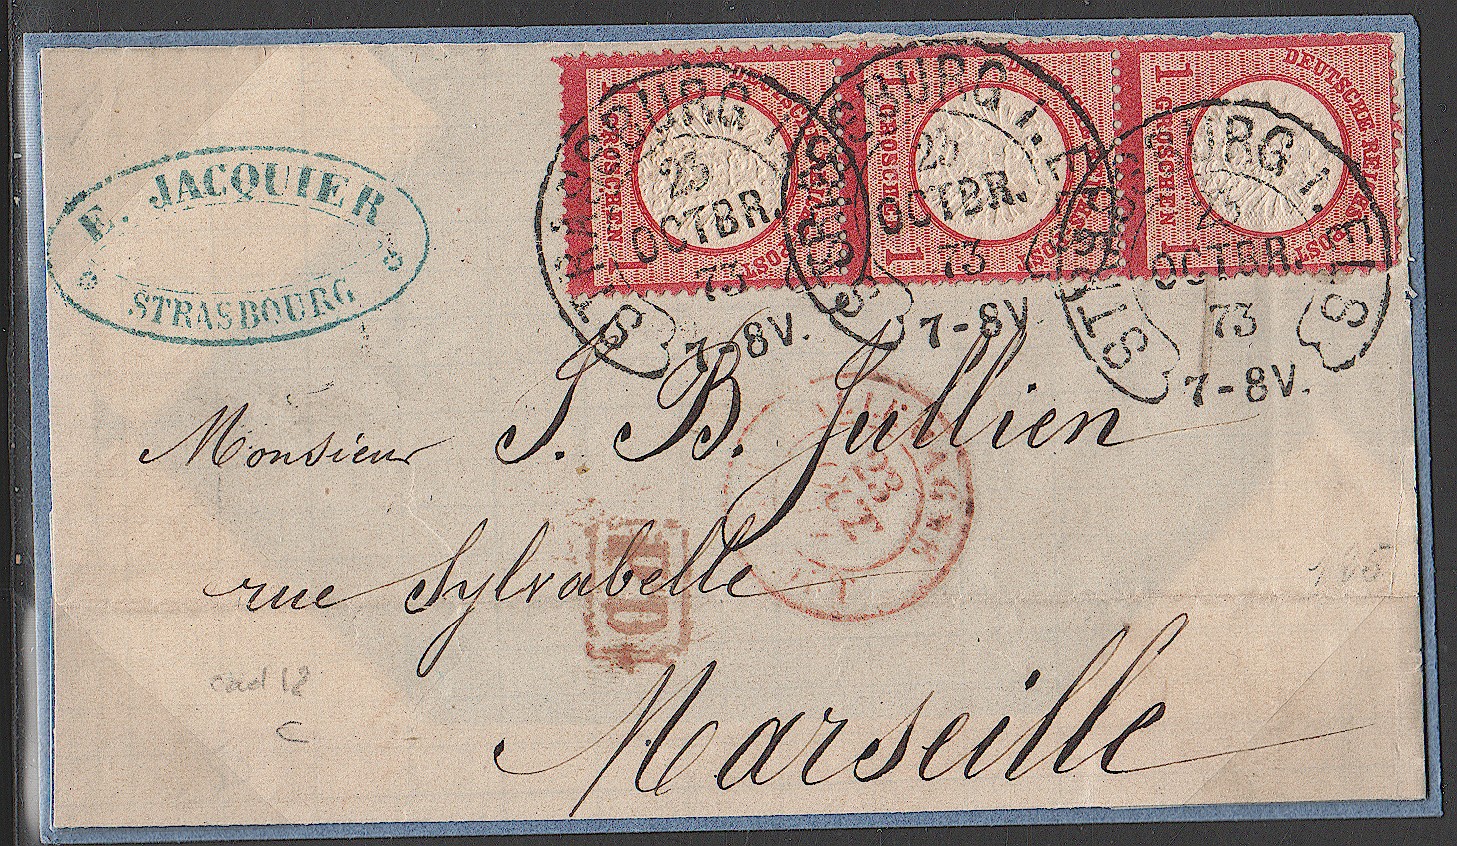 E. JACQUIER
STRASBOURG
DEUTSCHE REICHS-POST
1 GROSCHEN 1
DEUTSCHE REICHS-POST
1 GROSCHEN 1
DEUTSCHE REICHS-POST
1 GROSCHEN 1
STRASSBURG I. ELS
25
OCTBR.
73
7-8V.
STRASSBURG I. ELS
25
OCTBR.
73
7-8V.
STRASSBURG I. ELS
25
OCTBR.
73
7-8V.
Monsieur J. B. Jullien
rue Sylvabelle
Marseille
PD
cad 18
C